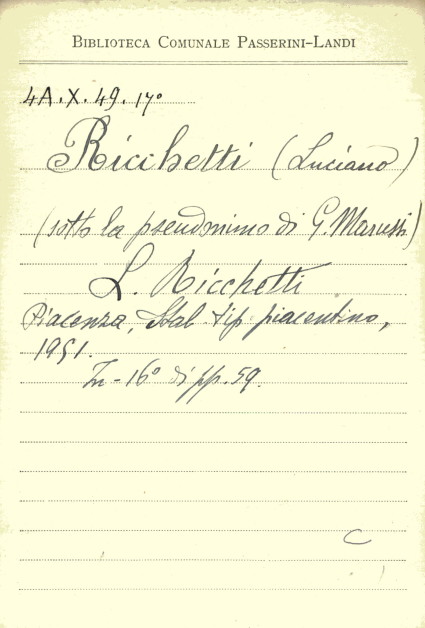 BIBLIOTECA COMUNALE PASSERINI-LANDI
4A.X.49.17°
Ricchetti (Luciano)
(sotto la pseudonimo di G. Marussi)
L. Ricchetti
Piacenza, Stab. tip. piacentino,
1951.
In-16° di pp. 59.
C